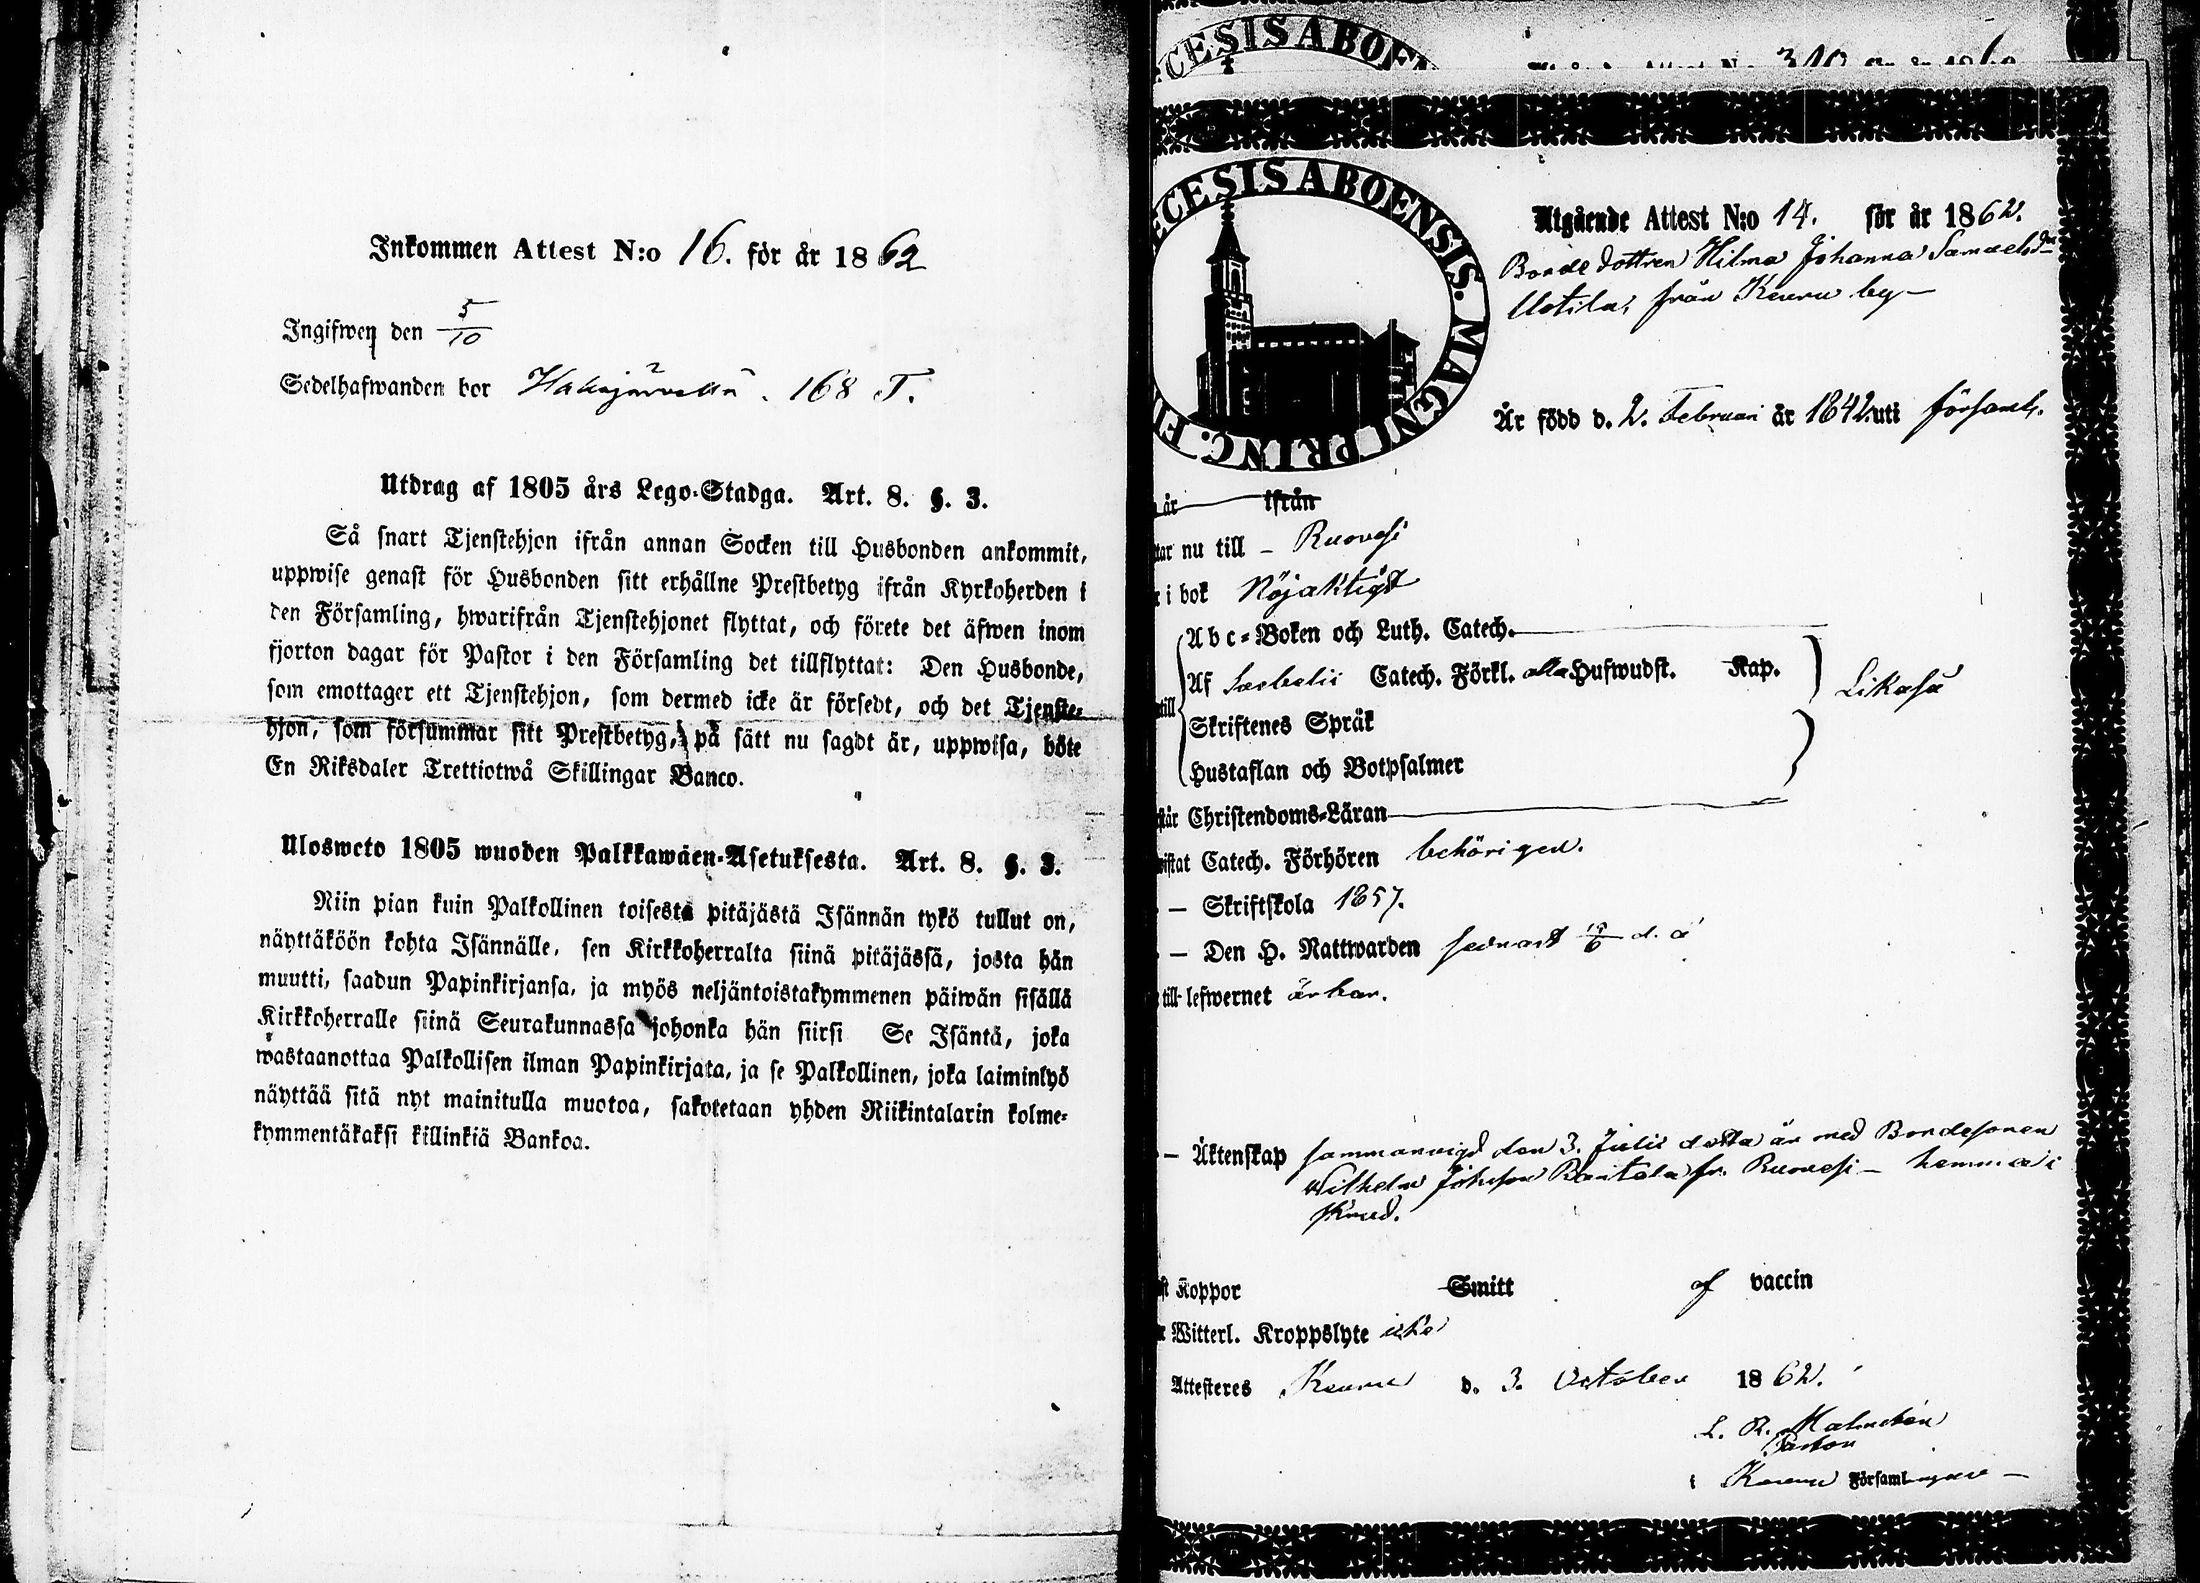 Inkommen Attest N:o 16. för år 1862
Ingifwen den 5/10
Sedelhafwanden bor 168 T.
Utdrag af 1805 års Lego-Stadga. Art. 8. §. 3.
Så snart Tjenstehjon ifrån annan Socken till Husbonden ankommit,
uppwise genast för Husbonden sitt erhållne Prestbetyg ifrån Kyrkoherden i
den Församling, hwarifrån Tjenstehjonet flyttat, och förete det äfwen inom
fjorton dagar för Pastor i den Församling det tillflyttat: Den Husbonde,
som emottager ett Tjenstehjon, som dermed icke är försedt, och det Tjenste-
hjon, som försummar sitt Prestbetyg, på sätt nu sagdt är, uppwisa, böte
En Riksdaler Trettiotwå Skillingar Banco.
Ulosweto 1805 wuoden Palkkawäen-Asetuksesta. Art. 8. §. 3.
Niin pian kuin Palkollinen toisesta pitäjästä Isännän tykö tullut on,
näyttäköön kohta Isännälle, sen Kirkkoherralta siinä pitäjässä, josta hän
muutti, saadun Papinkirjansa, ja myös neljäntoistakymmenen päiwän sisällä
Kirkkoherralle siinä Seurakunnassa johonka hän siirsi Se Isäntä, joka
wastaanottaa Palkollisen ilman Papinkirjata, ja se Palkollinen, joka laiminlyö
näyttää sitä nyt mainitulla muotoa, sakotetaan yhden Riikintalarin kolme-
kymmentäkaksi killinkiä Bankoa.
CESIS ABOEN
ECESIS ABOENSIS. MAGNI PRINC. FI
Utgående Attest N:o 14. för år 1862.
Bondedottren Hilma Johanna Samuelsdr
Uotila, från Keuru by
Är född d. 2. Februari år 1842 uti församl.
år ifrån
tar nu till - Ruovesi
i bok Nöjaktigt
Abc-Boken och Luth. Catech.
Af Sebelii Catech. Förkl. alla Hufwudst. Kap.
Likaså
till
Skriftenes Språk
Hustaflan och Botpsalmer
står Christendoms-Läran
wistat Catech. Förhören behörigen.
— Skriftskola 1857.
— Den H. Nattwarden senast d. å
till lefwernet ärbar.
— Äktenskap sammanvigd den 3. Julii detta år med Bondesonen
Wilhelm Johsson fr. Ruovesi - hemma i
st Koppor Smitt af vaccin
Witterl. Kroppslyte icke
Attesteres Keuru d. 3. October 1862.
L. R. Malmstén
Pastor
i Keuru Församl